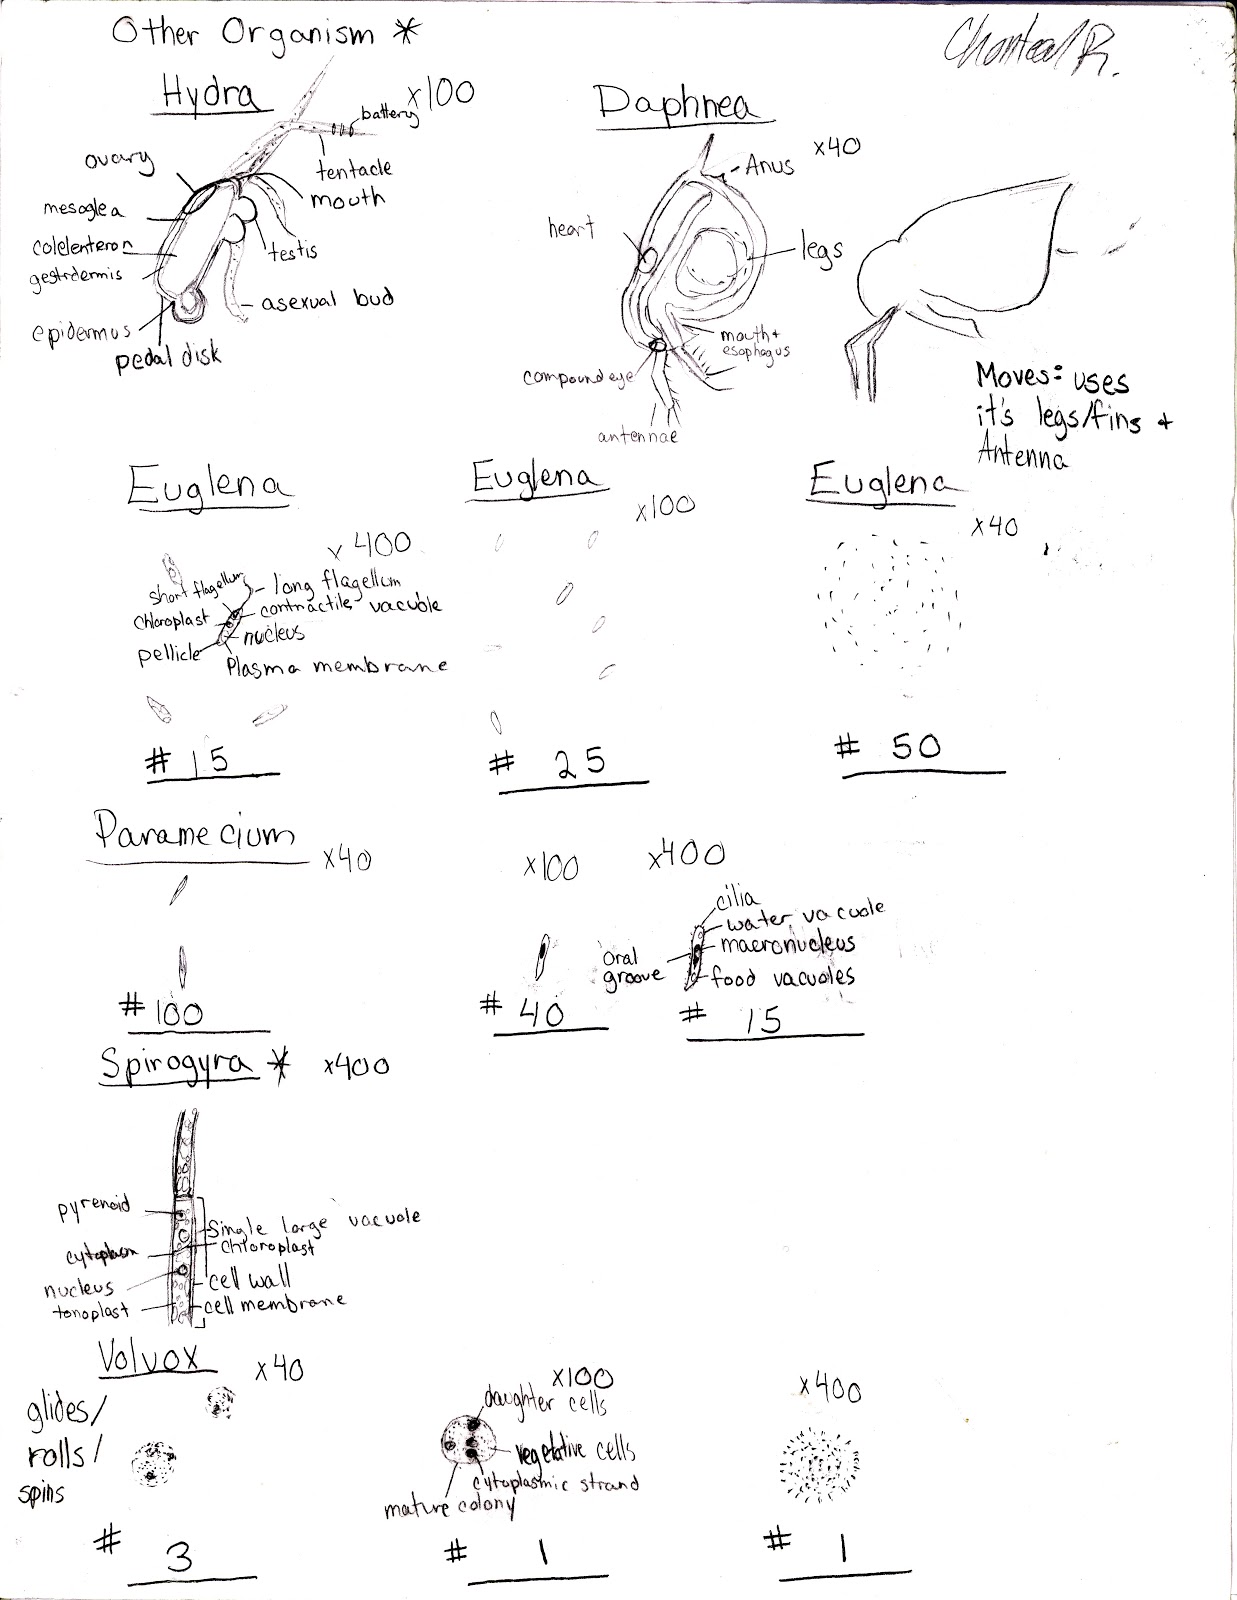 Other Organism *
Chanteal R.
Hydra
x100
battery
ovary
tentacle
mouth
mesoglea
colelenteron
testis
gestrdermis
asexual bud
epidermus
pedal disk
Daphnea
x40
Anus
heart
legs
mouth +
esophagus
compound eye
antennae
Moves: uses
it's legs/fins +
Antenna
Euglena
x400
short flagellum
long flagellum
Chloroplast
contractile vacuole
nucleus
pellicle
Plasma membrane
# 15
Euglena
x100
# 25
Euglena
x40
# 50
Paramecium
x40
# 100
x100
# 40
x400
cilia
water vacuole
macronucleus
Oral
groove
food vacuoles
# 15
Spirogyra *
x400
pyrenoid
Single large vacuole
chloroplast
cytoplasm
nucleus
cell wall
tonoplast
cell membrane
Volvox
x40
glides/
rolls/
spins
# 3
x100
daughter cells
vegetative cells
cytoplasmic strand
mature colony
# 1
x400
# 1